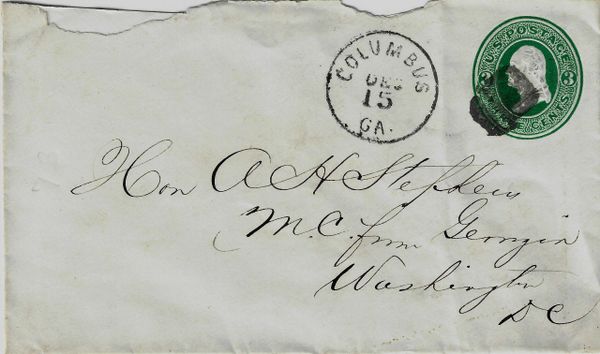 COLUMBUS
DEC
15
GA.
U.S. POSTAGE
3 3
CENTS
Hon A H Stephens
M.C. from Georgia
Washington
DC